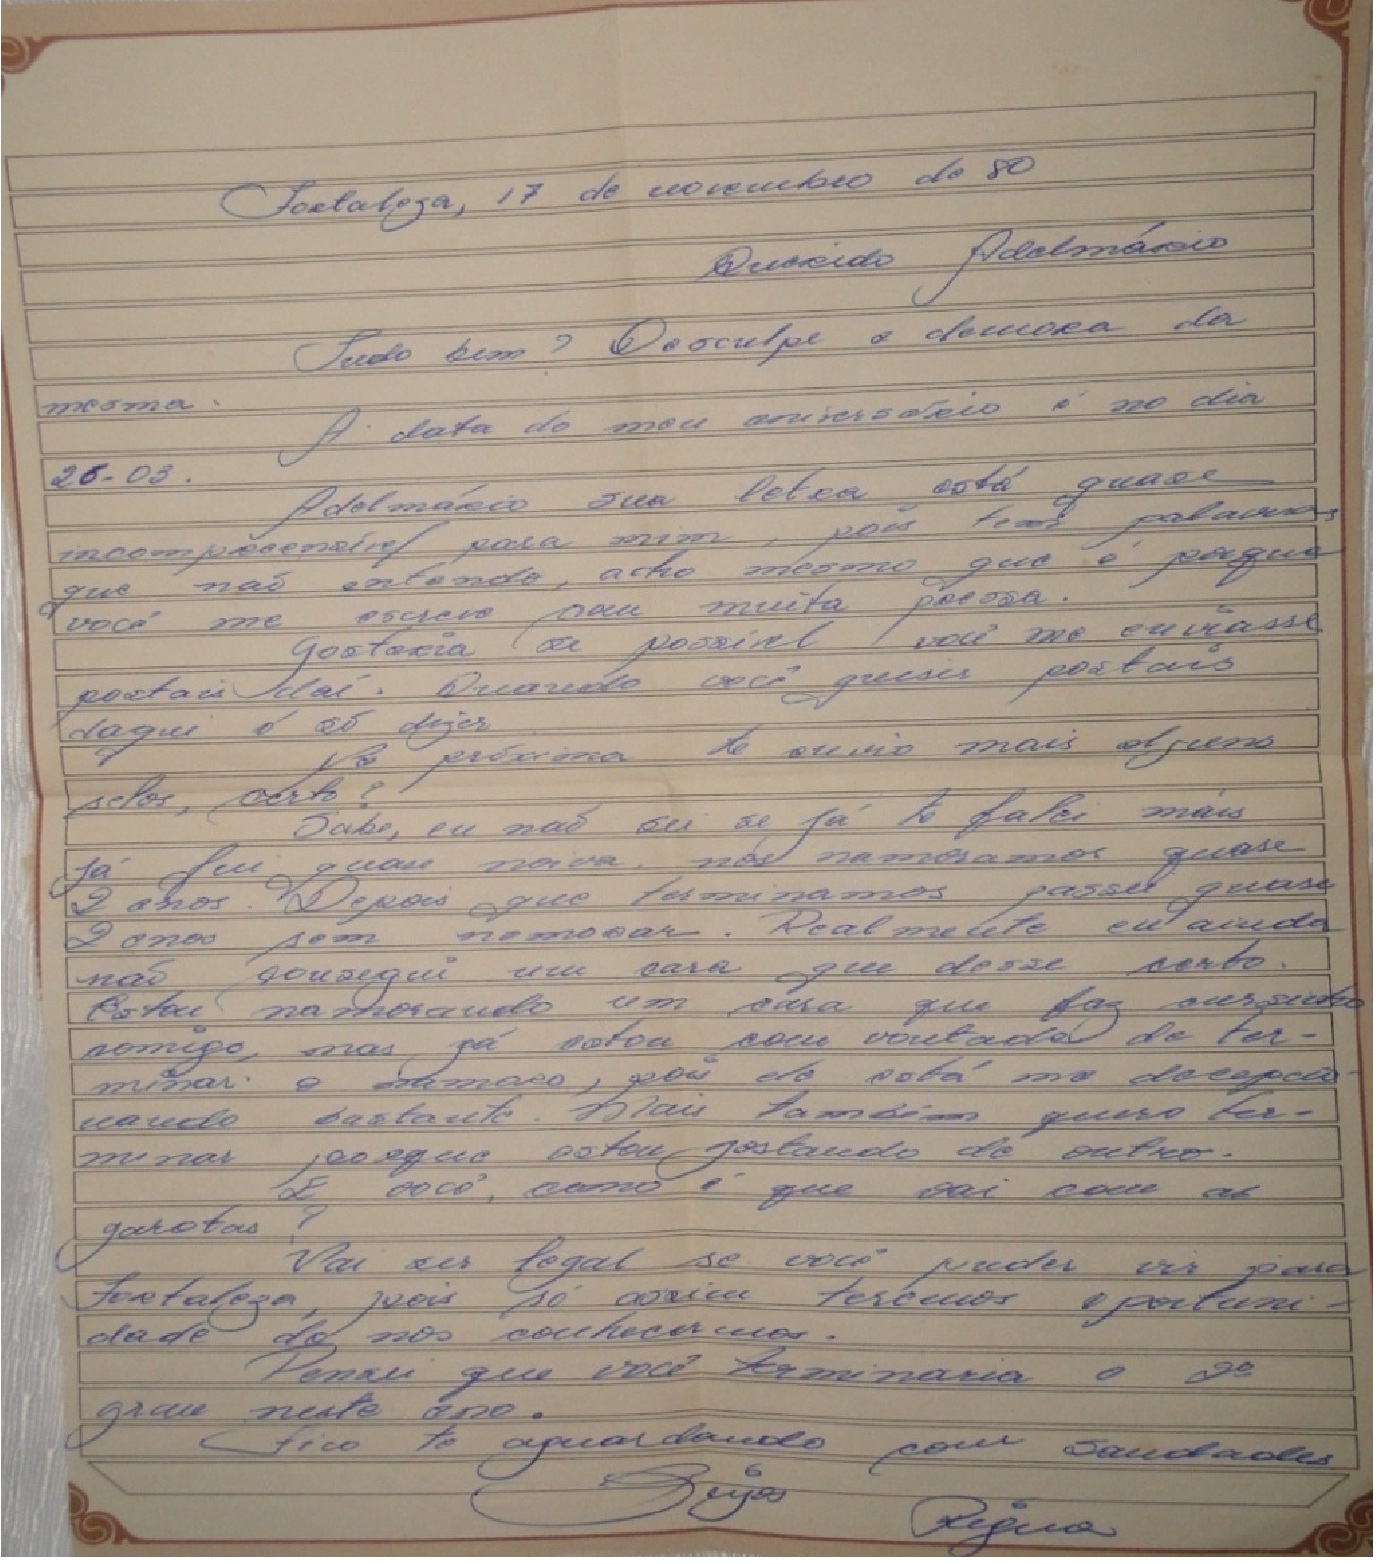 Fortaleza, 17 de novembro de 80
Querido Adelmárcio
Tudo bem? Desculpe a demora da
mesma.
A data do meu aniversário é no dia
26-03.
Adelmárcio sua letra está quase
incompreensível para mim, pois tem palavras
que não entendo, acho mesmo que é porque
você me escreve com muita pressa.
Gostaria se possível você me enviasse
postais daí. Quando você quiser postais
daqui é só dizer
Na próxima te envio mais alguns
selos, certo?
Sabe, eu não sei se já te falei mais
já fui quase noiva. nós namoramos quase
2 anos. Depois que terminamos passei quase
2 anos sem namorar. Realmente eu ainda
não consegui um cara que desse certo.
Estou namorando um cara que faz cursinho
comigo, mas já estou com vontade de ter-
minar o namoro, pois ele está me decepcio-
nando bastante. Mais também quero ter-
minar porque estou gostando de outro.
E você, como é que vai com as
garotas?
Vai ser legal se você puder vir para
Fortaleza, pois só assim teremos oportuni-
dade de nos conhecermos.
Pensei que você terminaria o 2º
grau neste ano.
Fico te aguardando com saudades
Beijos
Regina